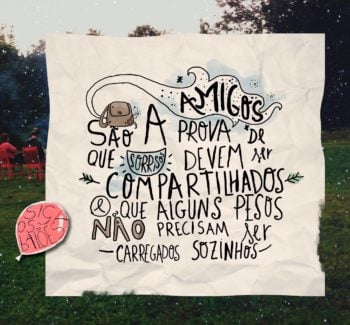 AMIGOS
SÃO A PROVA DE
QUE SORRISOS DEVEM ser
COMPARTILHADOS
& QUE ALGUNS PESOS
NÃO PRECISAM ser
— CARREGADOS SOZINHOS —
SIGA
OS
BALÕES